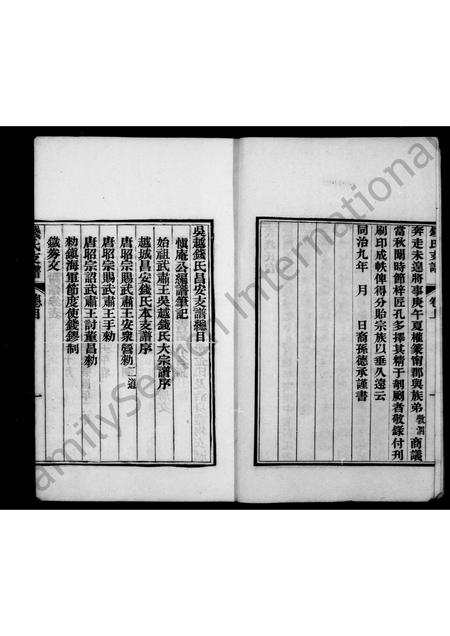 奔走未遑將事庚午夏權篆甯郡與族弟敬渭商議
當秋闈時節梓匠孔多擇其精于剞劂者敬錄付刊
刷印成帙俾得分貽宗族以垂久遠云
同治九年 月 日裔孫德承謹書
錢氏支譜 卷上
吳越錢氏昌安支譜總目
愼庵公編譜筆記
始祖武肅王吳越錢氏大宗譜序
越城昌安錢氏本支譜序
唐昭宗賜武肅王安衆營勅二道
唐昭宗賜武肅王手勅
唐昭宗詔武肅王討董昌勅
勅鎮海軍節度使錢鏐制
鐵劵文
總目 一
FamilySearch International